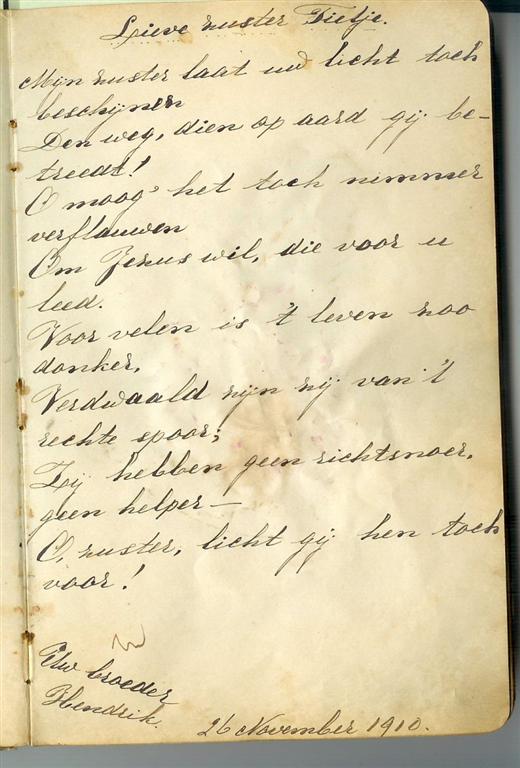 Lieve zuster Fietje.
Mijn zuster laat uw licht toch
beschijnen
Den weg, dien op aard gij be-
treedt!
O moog' het toch nimmer
verflauwen
Om Jezus wil, die voor u
leed.
Voor velen is 't leven zoo
donker,
Verdwaald zijn zij van 't
rechte spoor;
Zij hebben geen richtsnoer,
geen helper—
O, zuster, licht gij hen toch
voor!
Uw broeder
Hendrik.
26 November 1910.